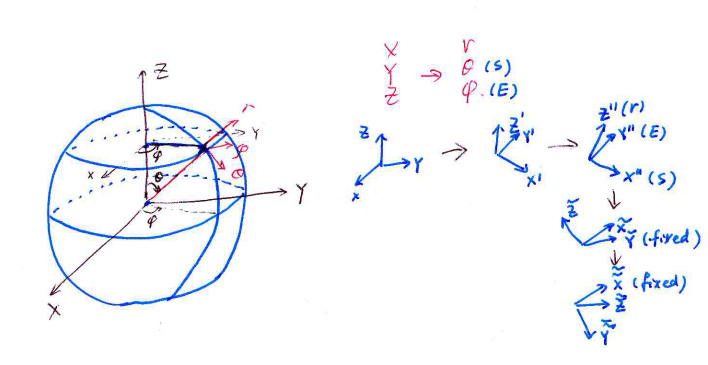 Z
r
Y
φ
φ
θ
X
θ
Y
φ
X
X r
Y → θ (S)
Z φ. (E)
Z
Y
X
Z'
Y'
X'
Z'' (r)
Y'' (E)
X'' (S)
Z̃
X̃
Ỹ (fixed)
X̃̃ (fixed)
Z̃̃
Ỹ̃